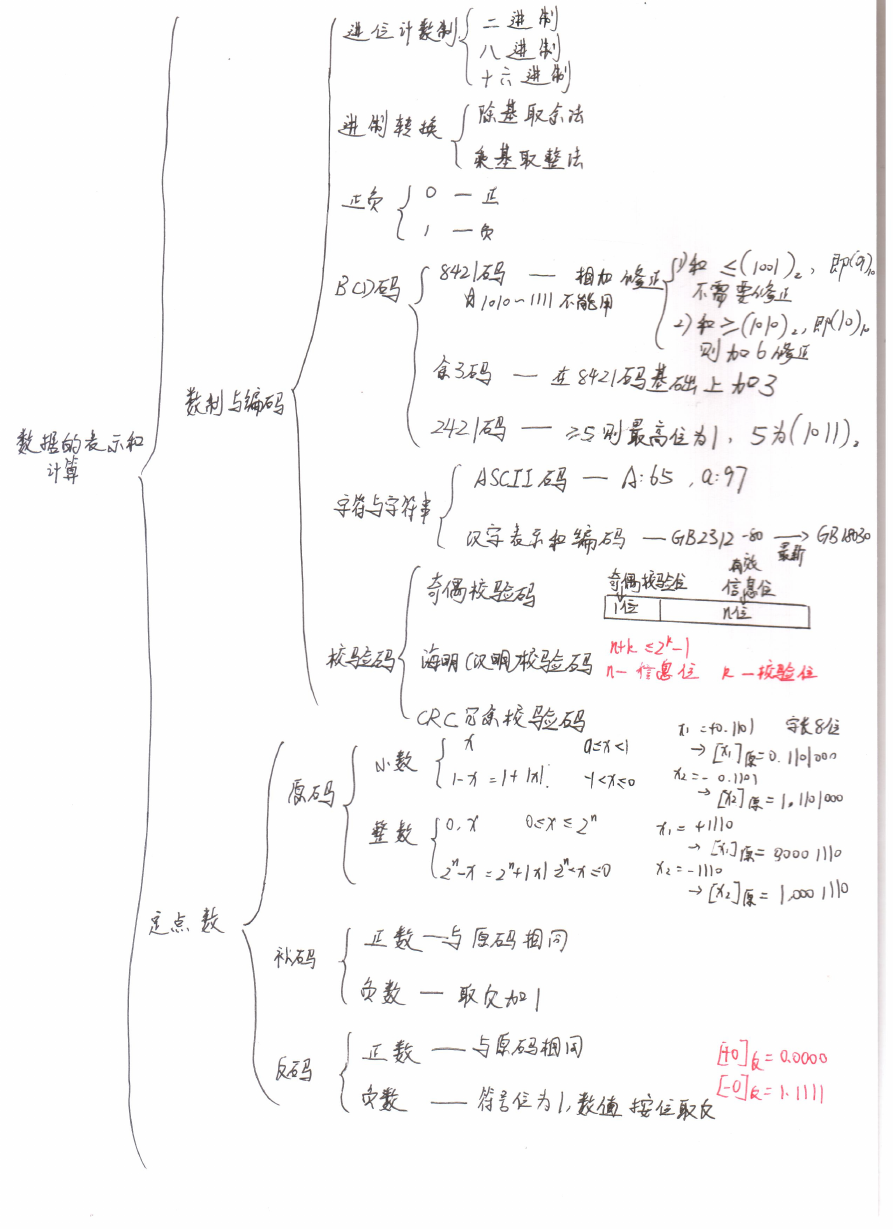 数据的表示和
计算
数制与编码
进位计数制
二进制
八进制
十六进制
进制转换
除基取余法
乘基取整法
正负
0 — 正
1 — 负
BCD码
8421码 — 相加修正
1010~1111不能用
1)和≤(1001)₂, 即(9)₁₀
不需要修正
2)和≥(1010)₂, 即(10)₁₀
则加6修正
余3码 — 在8421码基础上加3
2421码 — ≥5则最高位为1, 5为(1011)₂
字符与字符串
ASCII码 — A:65, a:97
汉字表示和编码 — GB2312-80 → GB18030
最新
校验码
奇偶校验码
奇偶校验位
有效
信息位
1位
n位
海明(汉明)校验码
n+k≤2^k-1
n—信息位 k—校验位
CRC冗余校验码
定点数
原码
小数
x 0≤x<1
1-x=1+|x| -1<x≤0
x₁=+0.1101 字长8位
→[x₁]原=0.1101000
x₂=-0.1101
→[x₂]原=1.1101000
整数
0,x 0≤x≤2ⁿ
2ⁿ-x=2ⁿ+|x| -2ⁿ<x≤0
x₁=+1110
→[x₁]原=0,0001110
x₂=-1110
→[x₂]原=1,0001110
补码
正数—与原码相同
负数 — 取反加1
反码
正数 — 与原码相同
负数 — 符号位为1,数值按位取反
[+0]反=0.0000
[-0]反=1.1111